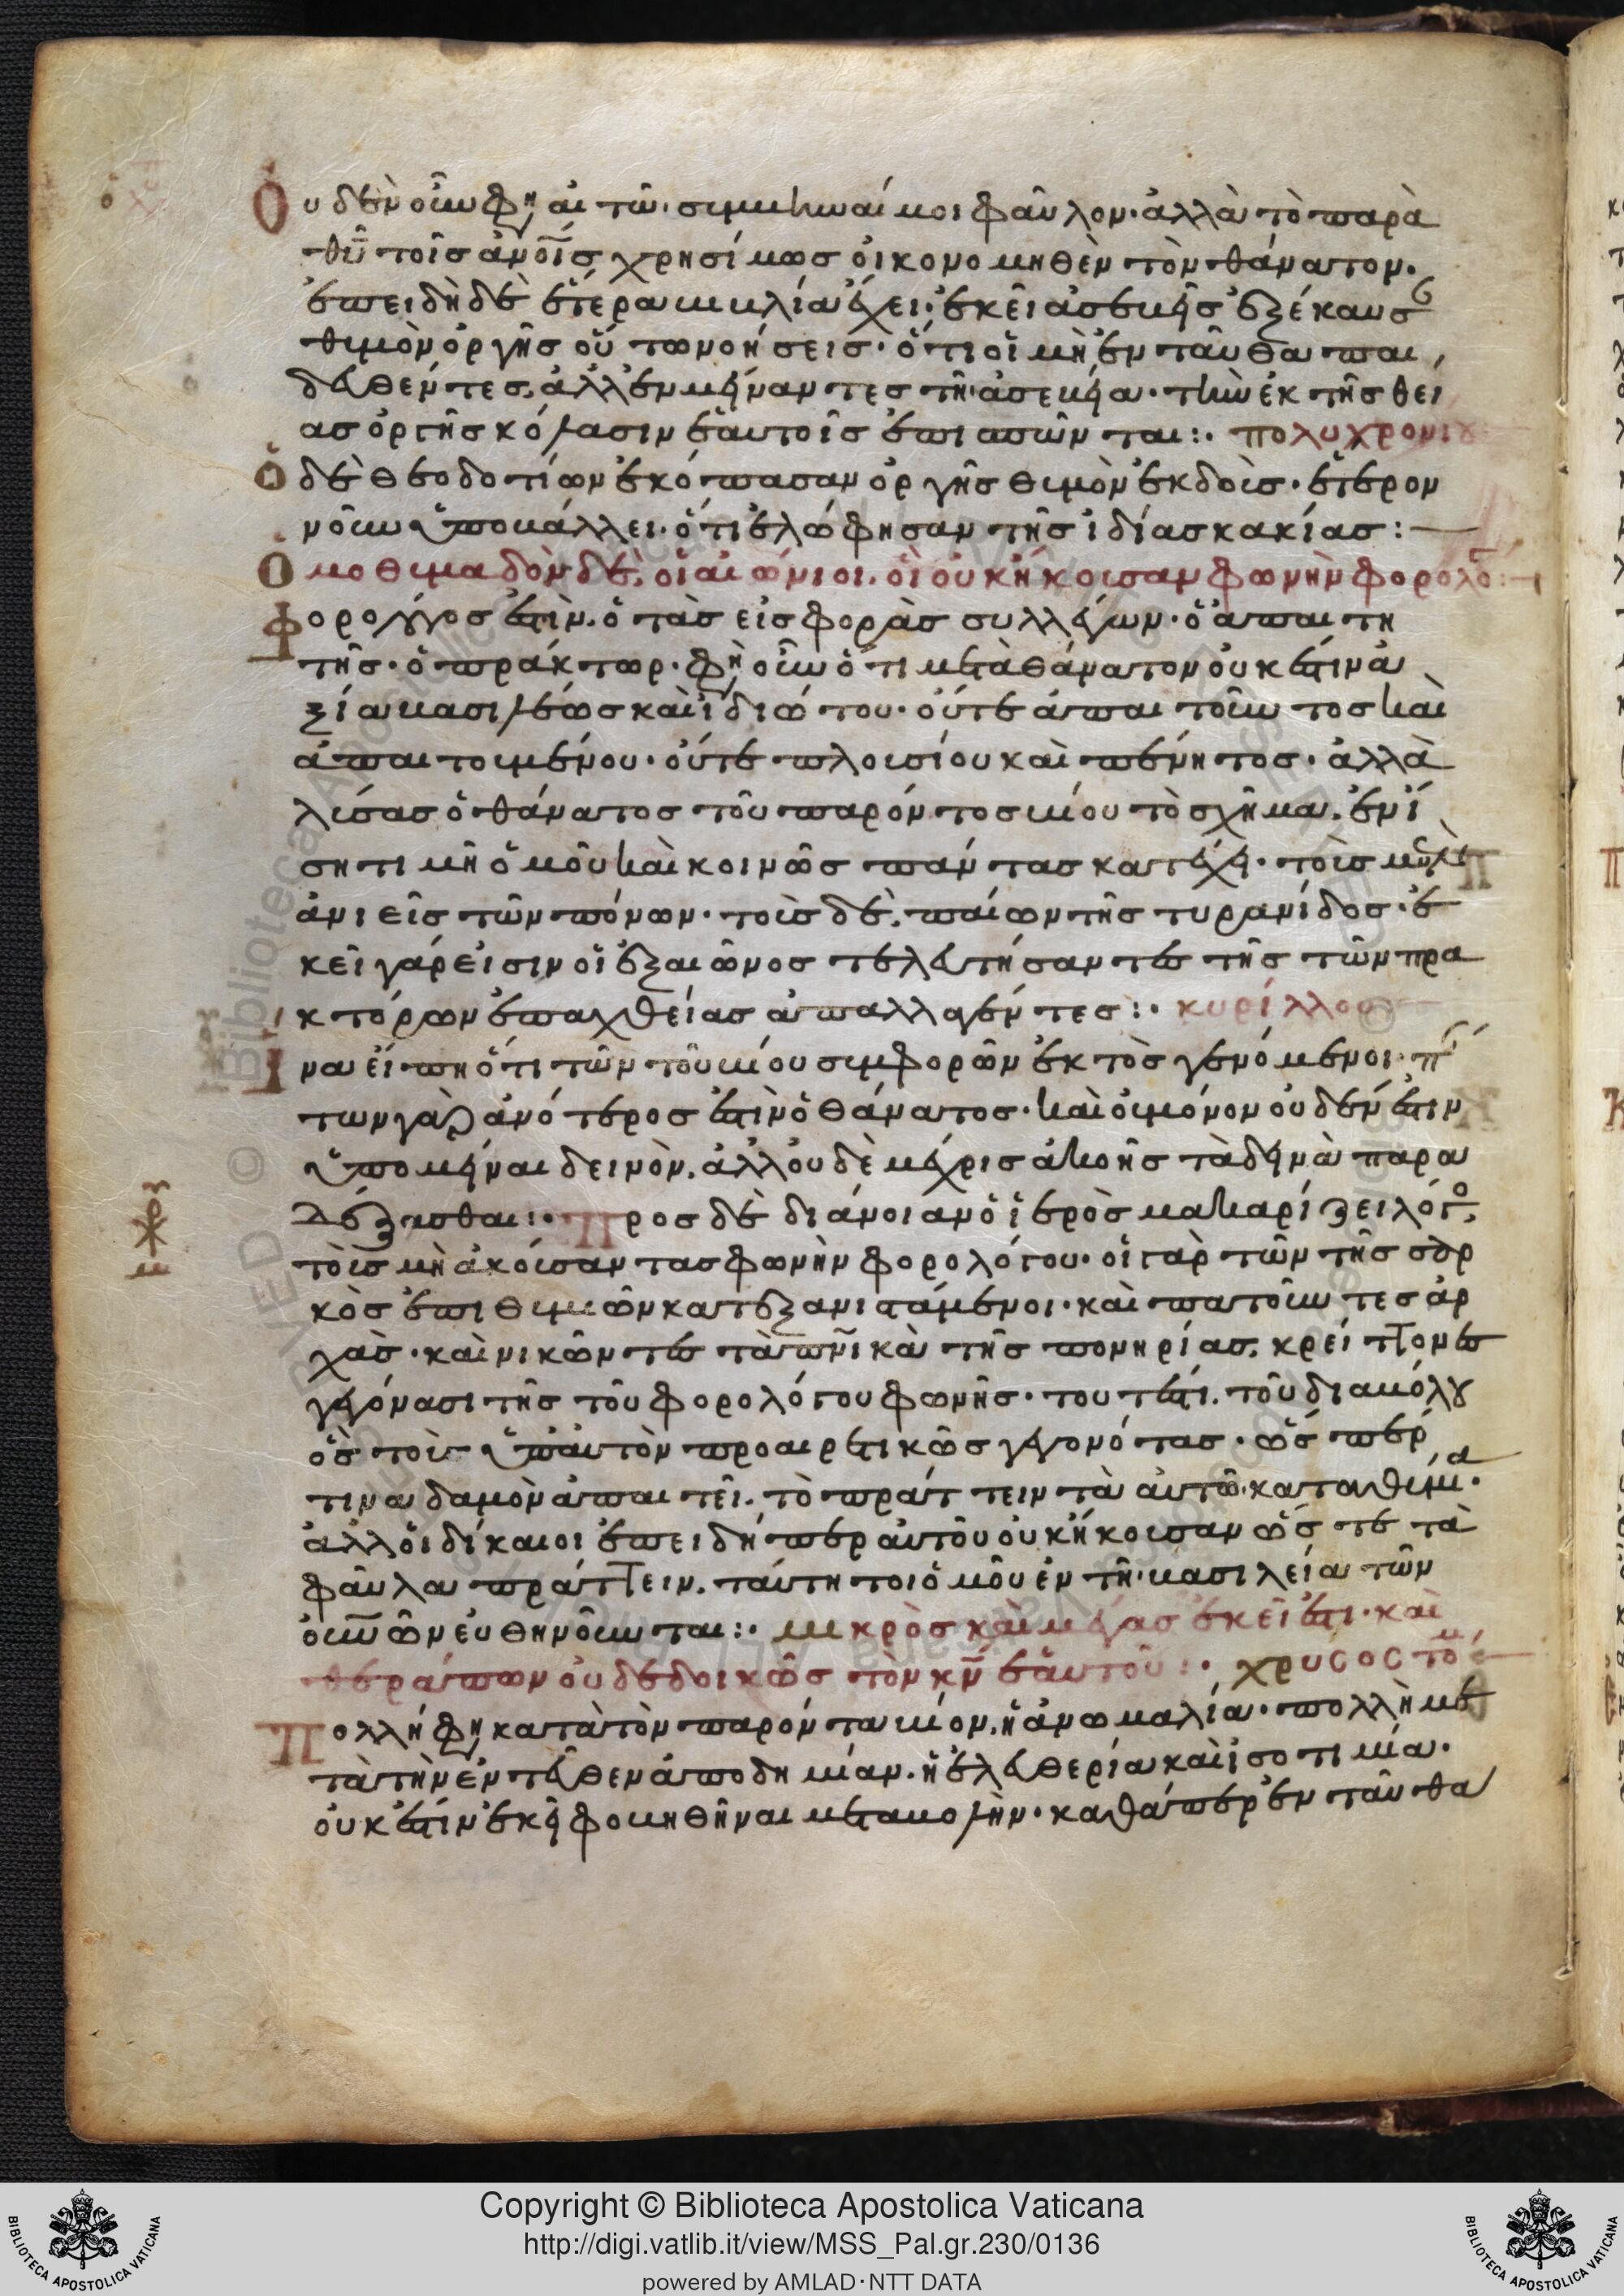 Οὐδὲν οὖν φη αἰτῶ συμβῆναί μοι φαῦλον· ἀλλὰ τὸ παρὰ
θῦ τοῖς ἀνοῖς χρησίμως οἰκονομηθὲν τὸν θάνατον·
ἐπειδὴ δὲ ἕτερα βιβλία ἔχει· ἐκεῖ ἀσεβεῖς ἐξέκαυσ
θυμὸν ὀργῆς οὕτω νοήσεις· ὅτι οἱ μὴ ἐνταῦθα παι
δευθέντες, ἀλλ' ἐμμείναντες τῆ ἀσεβεία· τὴν ἐκ τῆς θεί
ας ὀργῆς κόλασιν ἑαυτοῖς ἐπισπῶνται:· πολυχρονίου
Ὁ δὲ Θεοδοτίων ἐκόπασαν ὀργῆς θυμὸν ἐκδοὺς· ἕτερον
νοῦν ὑποβάλλει· ὅτι ἐλώφησαν τῆς ἰδίας κακίας:
Ὁμοθυμαδὸν δὲ, οἱ αἰώνιοι. οἱ οὐκ ἤκουσαν φωνὴν φορολό:
Φορολόγος ἐστὶν. ὁ τὰς εἰσφορὰς συλλέγων· ὁ ἀπαιτη
τῆς· ὁ πράκτωρ· φη οὖν ὅτι μετὰ θάνατον οὐκ ἔστιν ἀ
ξία βασιλέως καὶ ἰδιώτου· οὔτε ἀπαιτοῦντος καὶ
ἀπαιτουμένου· οὔτε πλουσίου καὶ πένητος· ἀλλὰ
λύσας ὁ θάνατος τοῦ παρόντος βίου τὸ σχῆμα. ἐν ἴ
ση τιμῆ ὁμοῦ καὶ κοινῶς πάντας κατέχει· τοὺς μὲν
ἀνιεὶς τῶν πόνων· τοὺς δὲ, παύων τῆς τυρανίδος· ἐ
κεῖ γάρ εἰσιν οἱ ἐξ αἰῶνος τελευτήσαντες τῆς τῶν πρα
κτόρων ἐπαχθείας ἀπαλλαγέντες:· κυρίλλου
Ἵνα εἴπη ὅτι τῶν τοῦ βίου συμφορῶν ἐκτὸς γενόμενοι·
των γὰρ ἀνότερος ἐστὶν ὁ θάνατος· καὶ οὐ μόνον οὐδέν ἐστιν
ὑπομεῖναι δεινὸν. ἀλλ' οὐδὲ μέχρις ἀκοῆς τὰ δεινὰ παρα
δέξασθαι:· Προς δὲ διάνοιαν ὁ ἱερὸς μακαρίζει λόγο,
τοὺς μὴ ἀκούσαντας φωνὴν φορολόγου· οἱ γὰρ τῶν τῆς σαρ
κὸς ἐπιθυμιῶν κατεξανιστάμενοι· καὶ πατοῦντες ἀρ
χὰς· καὶ νικῶντες τὰ πνικὰ τῆς πονηρίας. κρείττονες
γεγόνασι τῆς τοῦ φορολόγου φωνῆς· τουτέστι. τοῦ διαβόλου
ὃς τοὺς ὑπ' αὐτὸν προαιρετικῶς γεγονότας· ὥσπερ
τινα δασμὸν ἀπαιτεῖ. τὸ πράττειν τὰ αὐτῶ καταθύμια·
ἀλλ' οἱ δίκαιοι ἐπειδήπερ αὐτοῦ οὐκ ἤκουσαν ὥστε τὰ
φαῦλα πράττειν. ταύτη τοι ὁμοῦ ἐν τῆ βασιλεία τῶν
οὐνῶν εὐθηνοῦνται:· μικρὸς καὶ μέγας ἐκεῖ ἐστι· καὶ
θεράπων οὐ δεδοικὼς τὸν κν ἑαυτοῦ:· χρυσοστο
Πολλή φη κατὰ τὸν παρόντα βίον, ἡ ἀνωμαλία· πολλὴ με
τὰ τὴν ἐντεῦθεν ἀποδημίαν. ἡ ἐλευθερία καὶ ἰσοτιμία·
οὐκ ἔστιν ἐκεῖ φοβηθῆναι μεταβολήν· καθάπερ ἐνταῦθα
Copyright © Biblioteca Apostolica Vaticana
http://digi.vatlib.it/view/MSS_Pal.gr.230/0136
powered by AMLAD·NTT DATA
BIBLIOTECA APOSTOLICA VATICANA
BIBLIOTECA APOSTOLICA VATICANA